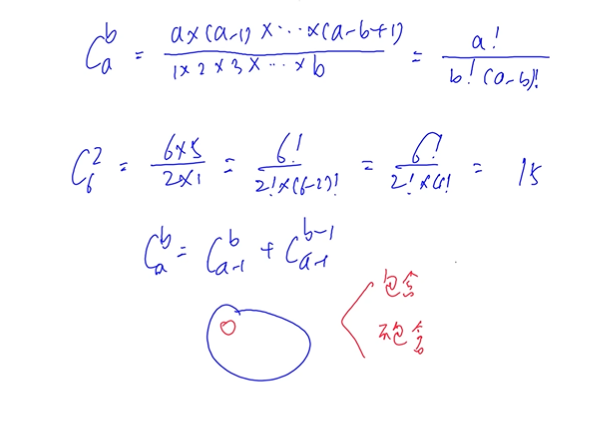 C_a^b = a×(a-1)×⋯×(a-b+1) / 1×2×3×⋯×b = a! / b!(a-b)!
C_6^2 = 6×5 / 2×1 = 6! / 2!×(6-2)! = 6! / 2!×4! = 15
C_a^b = C_{a-1}^b + C_{a-1}^{b-1}
包含
不包含